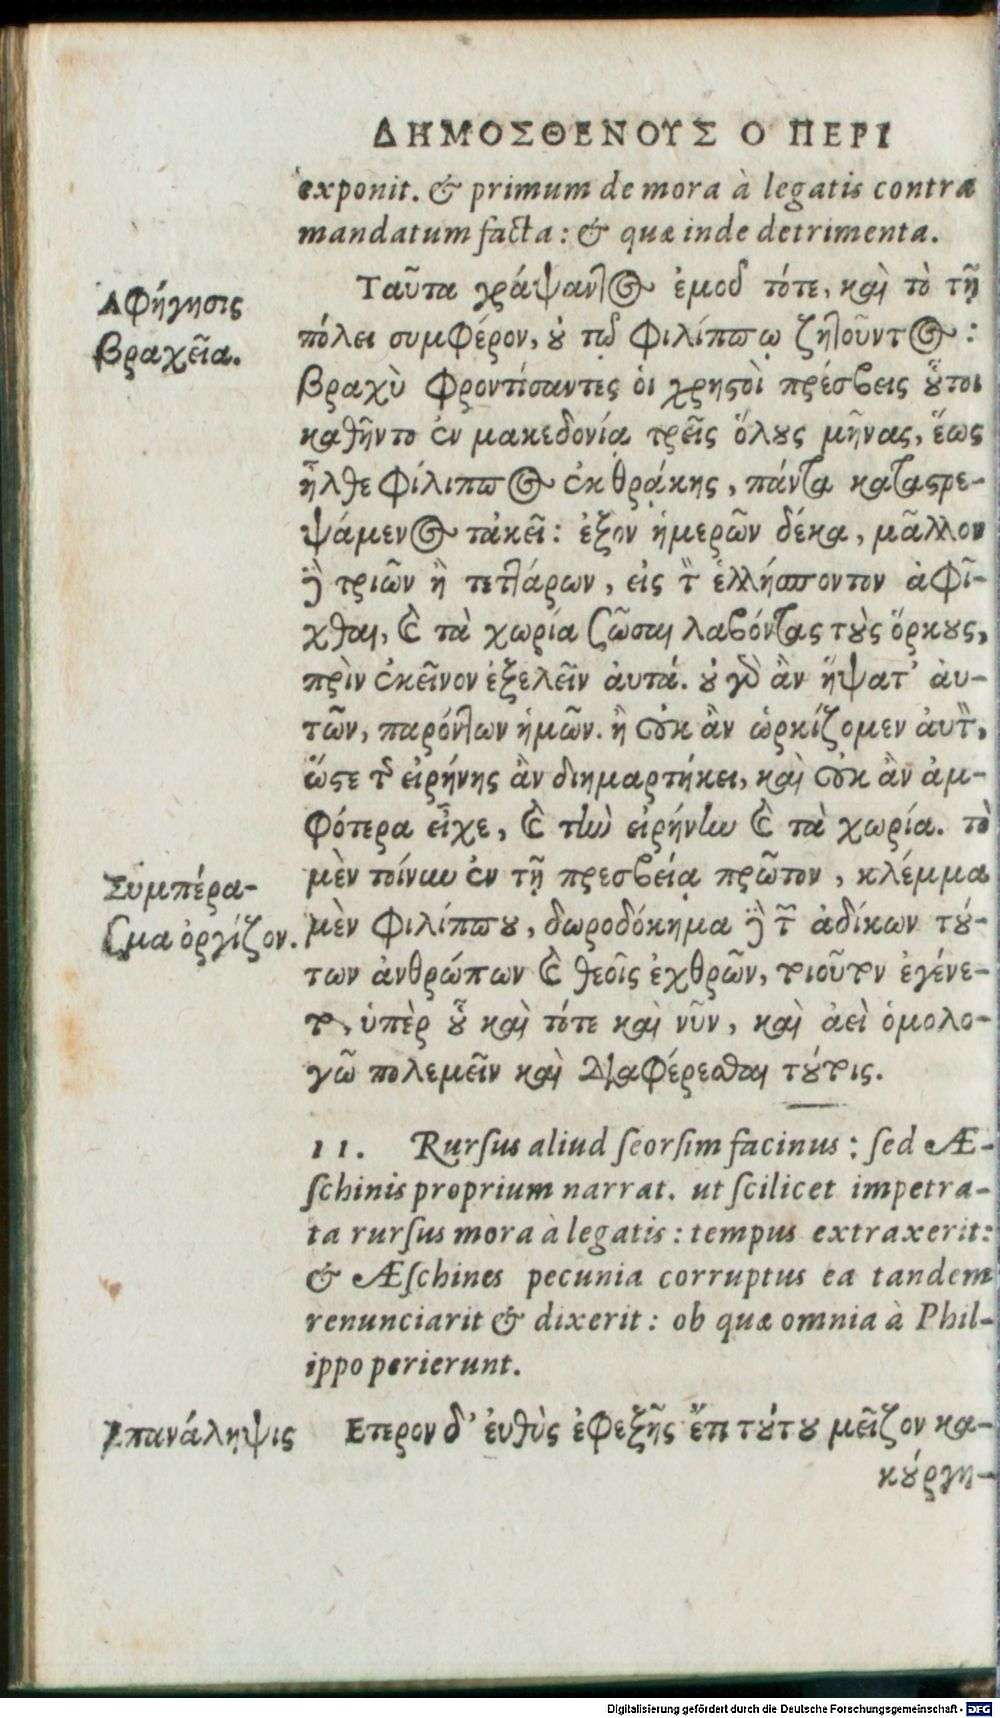 ΔΗΜΟΣΘΕΝΟΥΣ Ο ΠΕΡΙ
exponit. & primum de mora à legatis contra
mandatum facta: & quæ inde detrimenta.
Αφήγησις
βραχεῖα.
Ταῦτα γράψαντος ἐμοῦ τότε, καὶ τὸ τῇ
πόλει συμφέρον, ȣ̓ τῷ Φιλίππῳ ζητοῦντος:
βραχὺ φροντίσαντες ὁι χρηστοὶ πρέσβεις ȣ̓͂τοι
καθῆντο ἐν μακεδονίᾳ τρεῖς ὅλȣς μῆνας, ἕως
ἦλθε Φίλιππος ἐκ θρᾴκης, πάντα καταστρε-
ψάμενος τἀκεῖ: ἐξὸν ἡμερῶν δέκα, μᾶλλον
δὲ τριῶν ἢ τεττάρων, εἰς τὸν ἑλλήσποντον ἀφῖ-
χθαι, καὶ τὰ χωρία σῶσαι λαβόντας τȣ̀ς ὅρκȣς,
πρὶν ἐκεῖνον ἐξελεῖν ἀυτά. ȣ̓ γὰρ ἂν ἥψατ' ἀυ-
τῶν, παρόντων ἡμῶν. ἢ οὐκ ἂν ὡρκίζομεν ἀυτὸν,
ὥστε τῆς εἰρήνης ἂν διημαρτήκει, καὶ οὐκ ἂν ἀμ-
φότερα εἶχε, καὶ τὴν εἰρήνην καὶ τὰ χωρία. τὸ
Συμπέρα-
σμα ὀργίζον.
μὲν τοίνυν ἐν τῇ πρεσβείᾳ πρῶτον, κλέμμα
μὲν Φιλίππȣ, δωροδόκημα δὲ τῶν ἀδίκων τȣ́-
των ἀνθρώπων καὶ θεοῖς ἐχθρῶν, τοιοῦτον ἐγένε-
το, ὑπὲρ ȣ̔͂ καὶ τότε καὶ νῦν, καὶ ἀεὶ ὁμολο-
γῶ πολεμεῖν καὶ διαφέρεσθαι τȣ́τοις.
11. Rurſus aliud ſeorſim facinus: ſed Æ-
ſchinis proprium narrat. ut ſcilicet impetra-
ta rurſus mora à legatis: tempus extraxerit:
& Æſchines pecunia corruptus ea tandem
renunciarit & dixerit: ob quæ omnia à Phil-
ippo perierunt.
Επανάληψις
Ετερον δ' ἐυθὺς ἐφεξῆς ἔτι τȣ́τȣ μεῖζον κα-
κȣ́ργη-
Digitalisierung gefördert durch die Deutsche Forschungsgemeinschaft - DFG